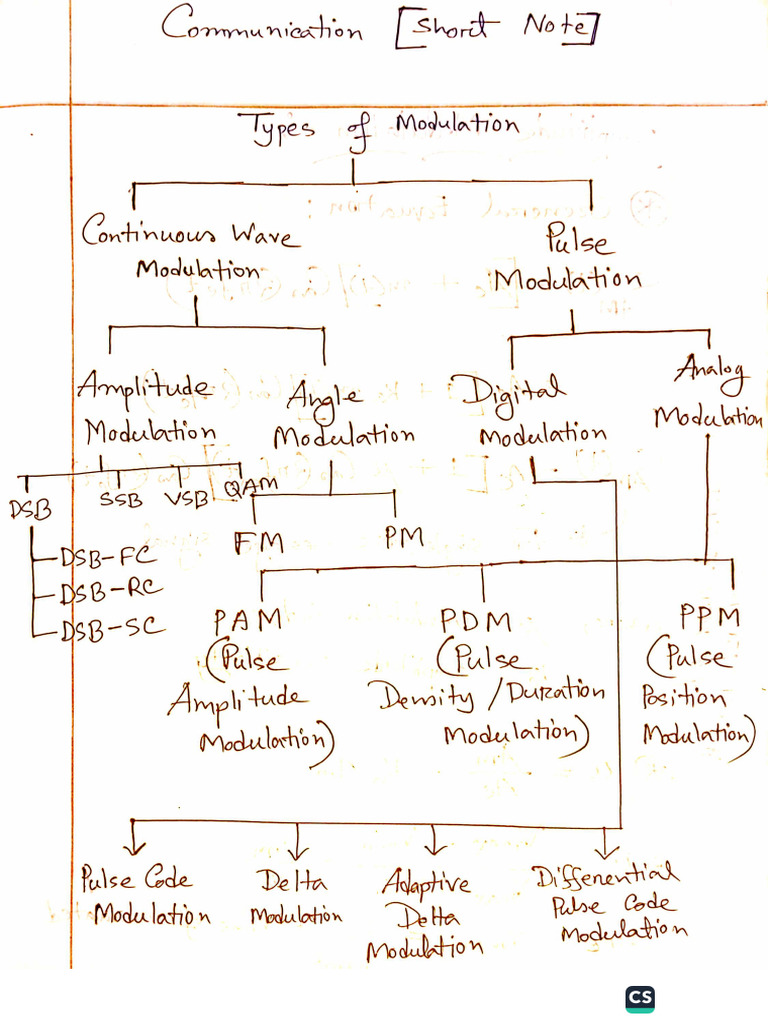 Communication [Short Note]
Types of Modulation
Continuous Wave
Modulation
Pulse
Modulation
Amplitude
Modulation
Angle
Modulation
Digital
Modulation
Analog
Modulation
DSB
SSB
VSB
QAM
DSB-FC
DSB-RC
DSB-SC
FM
PM
PAM
(Pulse
Amplitude
Modulation)
PDM
(Pulse
Density/Duration
Modulation)
PPM
(Pulse
Position
Modulation)
Pulse Code
Modulation
Delta
Modulation
Adaptive
Delta
Modulation
Differential
Pulse Code
Modulation
CS